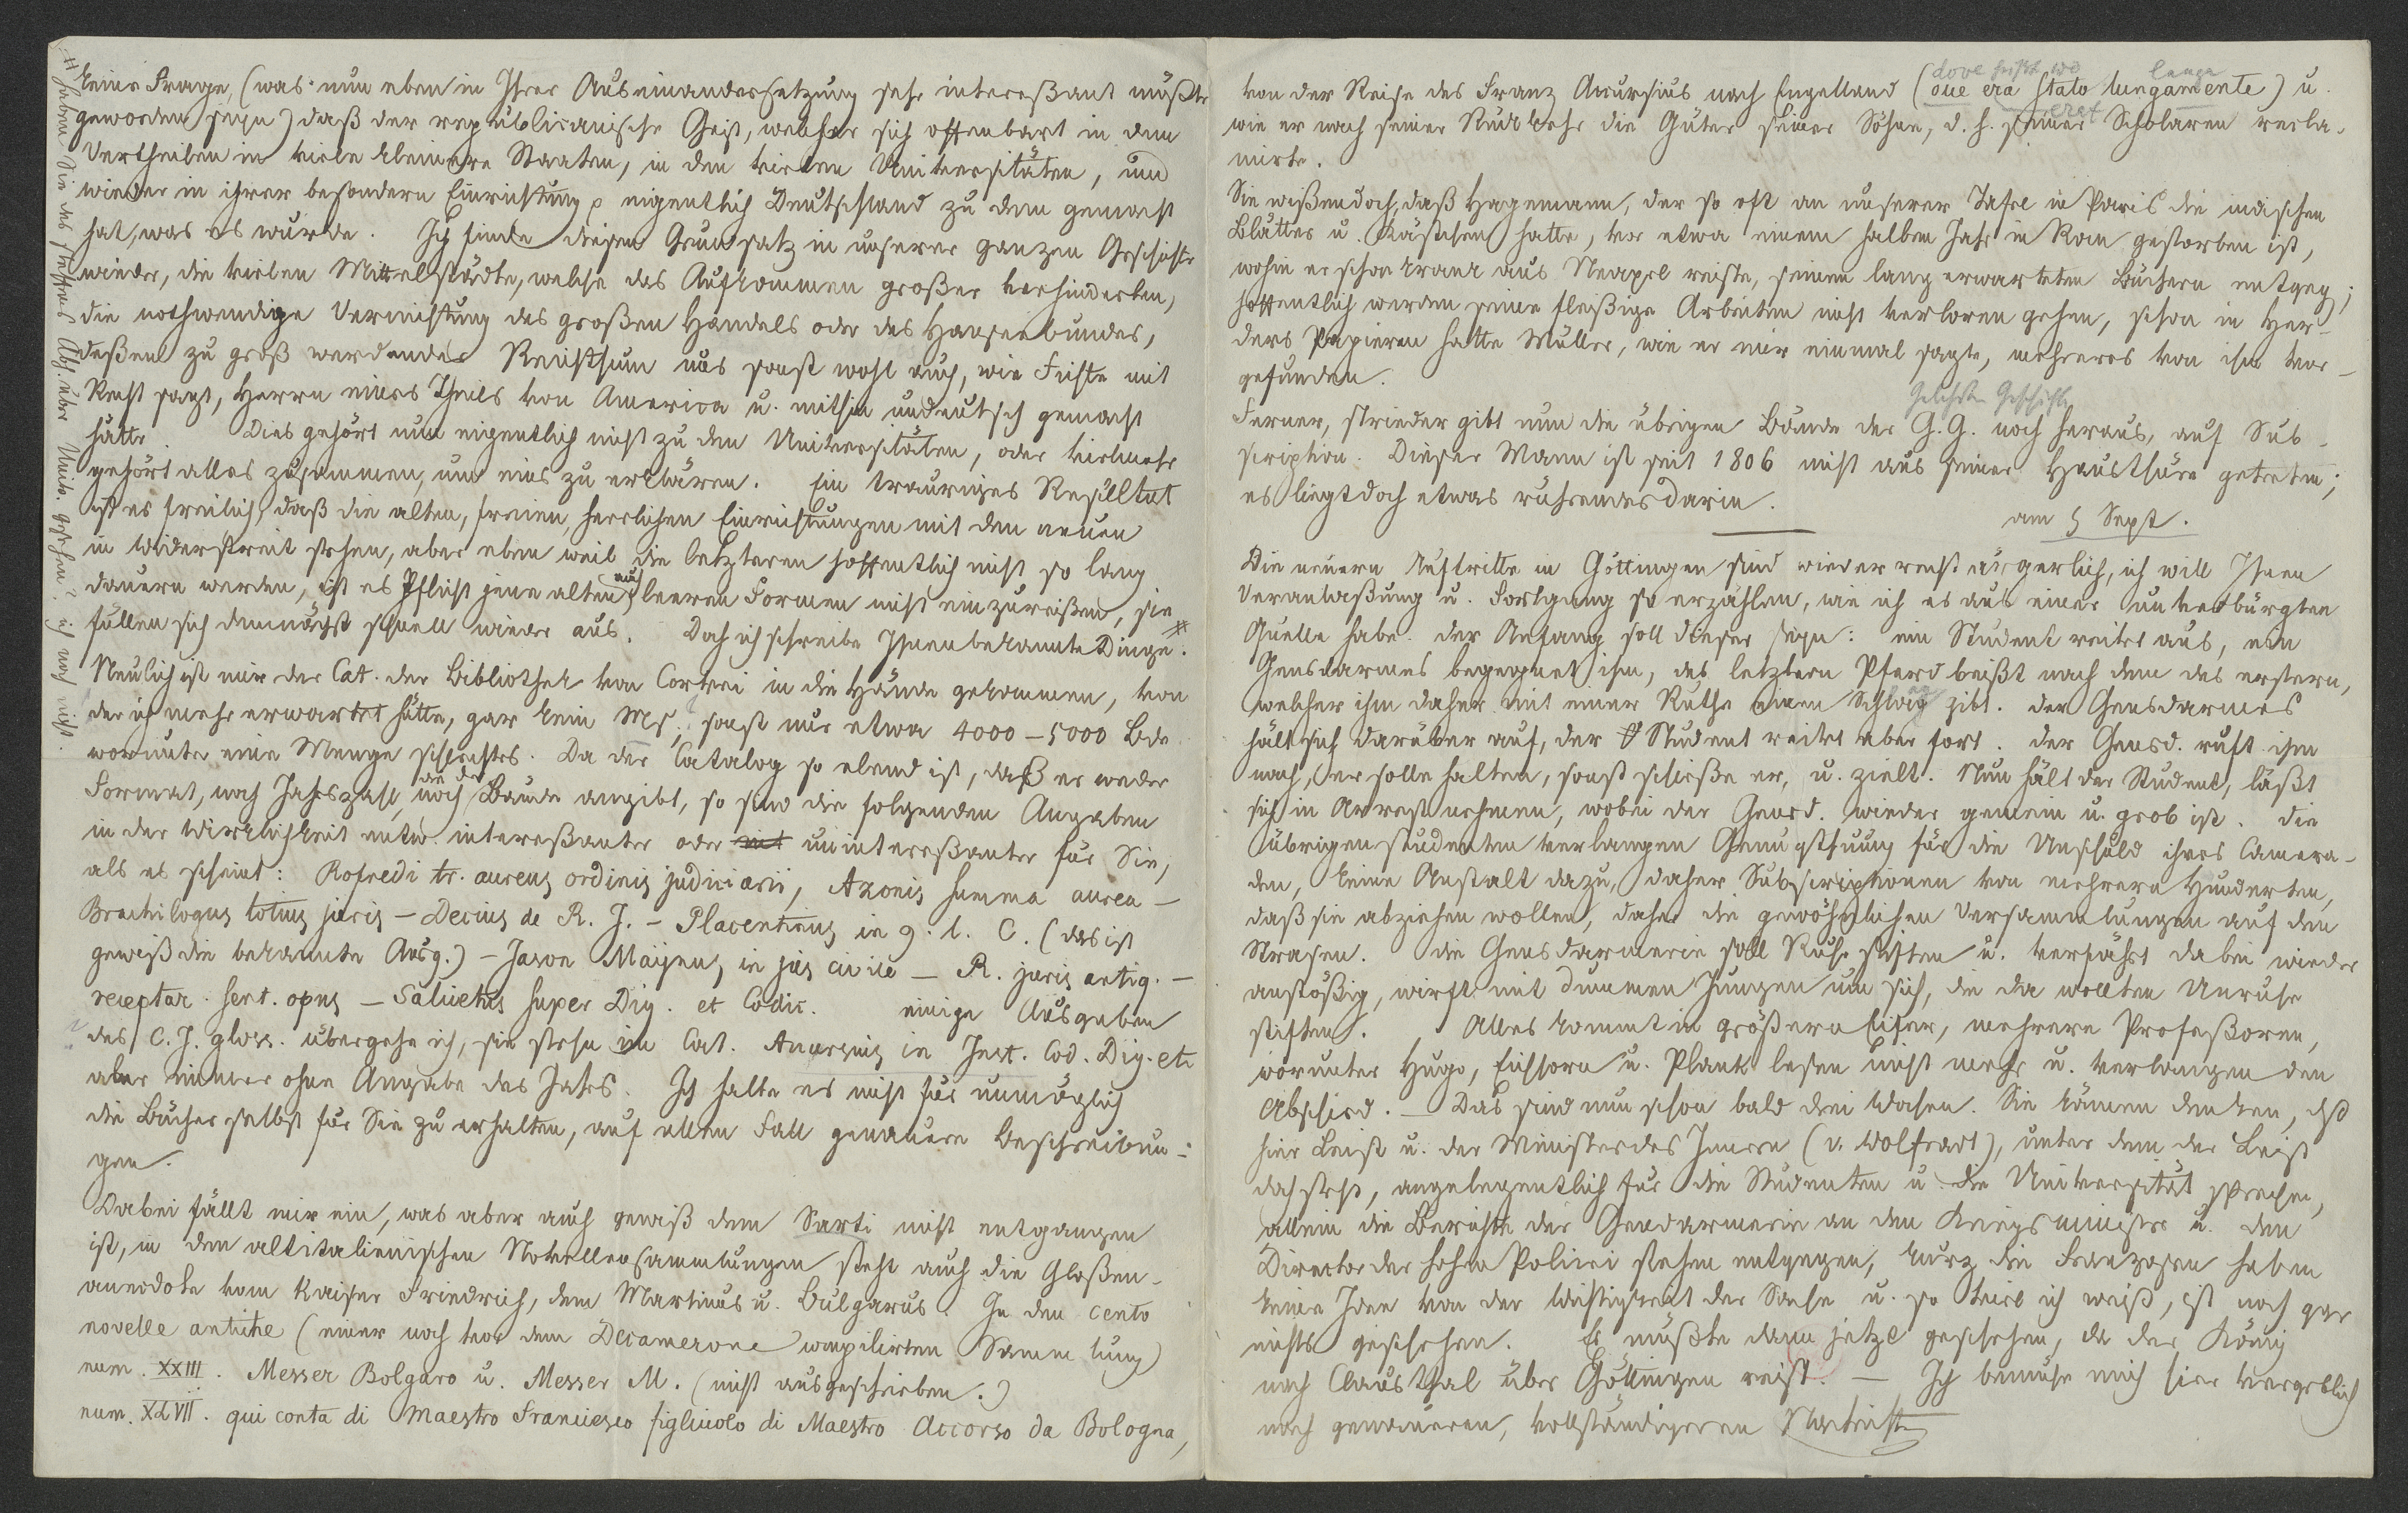 keine Frage, (was nun eben in Ihrer Auseinandersetzung sehr interessant müßte
geworden seyn) daß der republicanische Geist, welcher sich offenbart in dem
Vertheilen in viele kleinere Staaten, in den vielen Universitäten, und
wieder in ihrer besondern Einrichtung p eigentlich Deutschland zu dem gemacht
hat, was es wurde. Ich finde diesen Grundsatz in unserer ganzen Geschichte
wieder, die vielen Mittelstädte, welche das Aufkommen großer verhinderten,
die nothwendige Vernichtung des großen Handels oder des Hansebundes,
deßen zu groß werdender Reichthum uns sonst wohl auch, wie Fichte mit
Recht sagt, Herrn eines Theils von America u. mithin undeutsch gemacht
hätte. Dies gehört nun eigentlich nicht zu den Universitäten, oder vielmehr
gehört alles zusammen, um eins zu erklären. Ein trauriges Resultat
ist es freilich, daß die alten, freien, herrlichen Einrichtungen mit den neuen
in Widerstreit stehen, aber eben weil die letzteren hoffentlich nicht so lang
dauern werden, ist es Pflicht jene alten auch leeren Formen nicht einzureißen, sie
füllen sich demnächst schnell wieder aus. Doch ich schreibe Ihnen bekannte Dinge. #
Neulich ist mir der Cat. der Bibliothek von Corvei in die Hände gekommen, von
der ich mehr erwartet hätte, gar kein Ms, sonst nur etwa 4000 – 5000 Bde
worunter eine Menge schlechtes. Da der Catalog so elend ist, daß er weder
Format, noch Jahrszahl, noch die der Bände angibt, so sind die folgenden Angaben
in der Wirklichkeit entw. interessanter oder uninteressanter für Sie,
als es scheint: Rofredi tr. aureus ordinis judiciarii, Azonis summa aurea –
Brachilogus totius juris – Decius de R. J. – Placentinus in 9. l. C. (das ist
gewiß die bekannte Ausg.) – Jason Mayus, in jus civile – R. juris antiq. –
receptar. sent. opus – Salicetus super Dig. et Codic. einige Ausgaben
des C. J. gloss. übergehe ich, sie stehn im Cat. Accursius in Inst. Cod. Dig. etc
aber immer ohne Angabe des Jahrs. Ich halte es nicht für unmöglich
die Bücher selbst für Sie zu erhalten, auf allen Fall genauere Beschreibun-
gen.
Dabei fällt mir ein, was aber auch gewiß dem Sarti nicht entgangen
ist, in den altitalienischen Novellensammlungen steht auch die Gloßen-
anecdote vom Kaiser Friedrich, dem Martinus u. Bulgarus. In den cento
novelle antiche (einer noch vor dem Decamerone compilirten Sammlung)
num. XXIII. Messer Bolgaro u. Messer M. (nicht ausgeschrieben.)
num. XLVII. qui conta di Maestro Francesco figliuolo di Maestro Accorso da Bologna,
# haben Sie des Abh. über Univ. gesehen? ich noch nicht.
dove lange
von der Reise des Franz Accursius nach Engelland (oue era stato lungamente) u.
wie er nach seiner Rückkehr die Güter seiner Söhne, d. h. seiner Scholaren recla-
mirte.
Sie wißen doch, daß Hagemann, der so oft an unserer Tafel in Paris die indischen
Blätter u. Kästchen hatte, vor etwa einem halben Jahr in Rom gestorben ist,
wohin er schon krank aus Neapel reiste, seinen lang erwarteten Büchern entgeg;
hoffentlich werden seine fleißige Arbeiten nicht verloren gehen, schon in Her-
ders Papieren hatte Müller, wie er mir einmal sagte, mehreres von ihm vor-
gefunden.
Gelehrten Geschichte
Ferner, Strieder gibt nun die übrigen Bände der G. G. noch heraus, auf Sub-
scription. Dieser Mann ist seit 1806 nicht aus seiner Hausthüre getreten;
es liegt doch etwas rührendes darin.
am 5 Sept.
Die neuern Auftritte in Göttingen sind wieder recht ärgerlich, ich will Ihnen
Veranlaßung u. Fortgang so erzählen, wie ich es aus einer unverbürgten
Quelle habe. der Anfang soll dieser seyn: ein Student reitet aus, ein
Gensdarmes begegnet ihm, des letztern Pferd beißt nach dem des erstern,
welcher ihm daher mit einer Ruthe einen Schlag gibt. der Gensdarmes
hält sich darüber auf, der Student reitet aber fort. der Gensd. ruft ihm
nach, er solle halten, sonst schieße er, u. zielt. Nun hält der Student, läßt
sich in Arrest nehmen, wobei der Gensd. wieder gemein u. grob ist. die
übrigen Studenten verlangen Genugthuung für die Unschuld ihres Camera-
den, keine Anstalt dazu, daher Subscriptionen von mehrern Hunderten,
daß sie abziehen wollen, daher die gewöhnlichen Versammlungen auf den
Strasen. die Gensdarmerie soll Ruhe stiften u. verfährt dabei wieder
anstößig, wirft mit dummen Jungen um sich, die da wollten Unruhe
stiften. Alles kommt in größern Eifer, mehrere Profeßoren,
worunter Hugo, Eichhorn u. Plank lesen nicht mehr u. verlangen den
Abschied. – Das sind nun schon bald drei Wochen. Sie können denken, dß
hier Leist u. der Minister des Innern (v. Wolfradt), unter dem der Leist
doch steht, angelegentlich für die Studenten u. die Universität sprechen,
allein die Berichte der Gendarmerie an den Kriegsminister u. den
Director der hohen Polizei stehen entgegen, kurz die Franzosen haben
keine Idee von der Wichtigkeit der Sache u. so viel ich weiß, ist noch gar
nichts geschehen. Es müßte dann jetzt geschehen, da der König
nach Clausthal über Göttingen reist. – Ich bemühe mich hier vergeblich
nach genaueren, vollständigeren Nachrichten